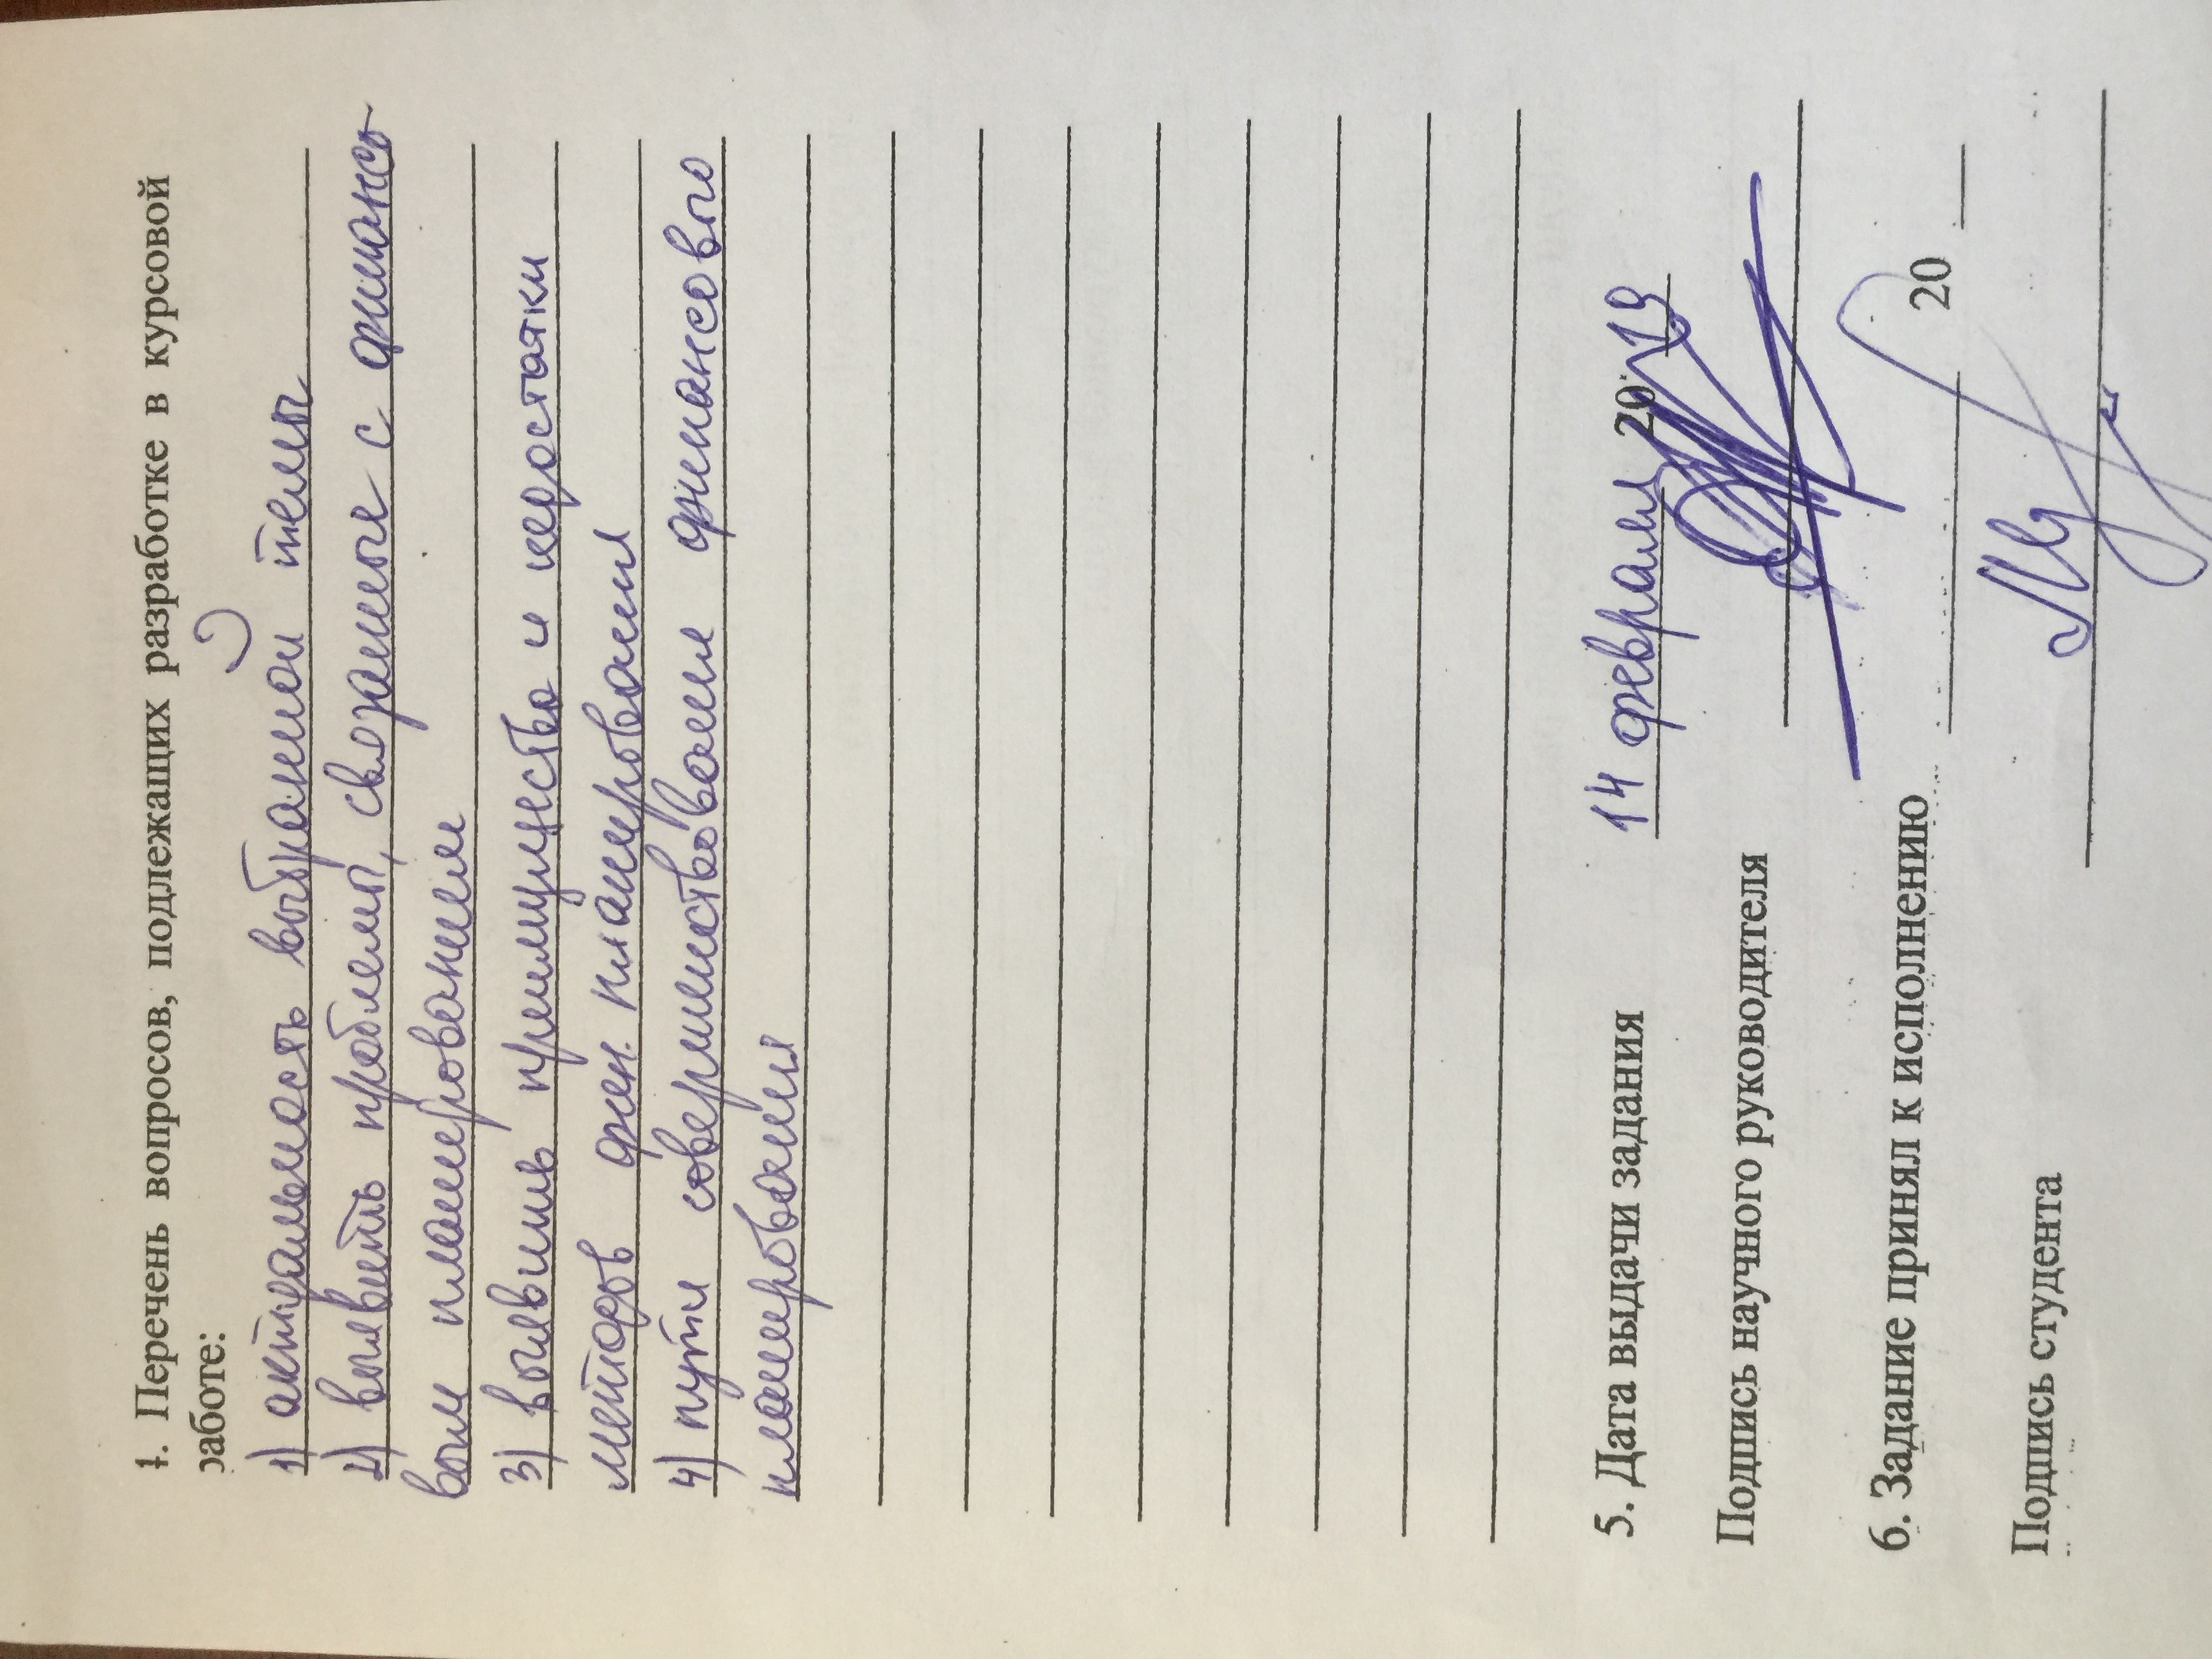 4. Перечень вопросов, подлежащих разработке в курсовой
работе:
1) актуальность выбранной темы
2) выявить проблемы, связанные с финансо
вым планированием
3) выявить преимущества и недостатки
методов фин. планирования
4) пути совершенствования финансового
планирования
5. Дата выдачи задания 14 февраля 2019
Подпись научного руководителя
6. Задание принял к исполнению 20
Подпись студента